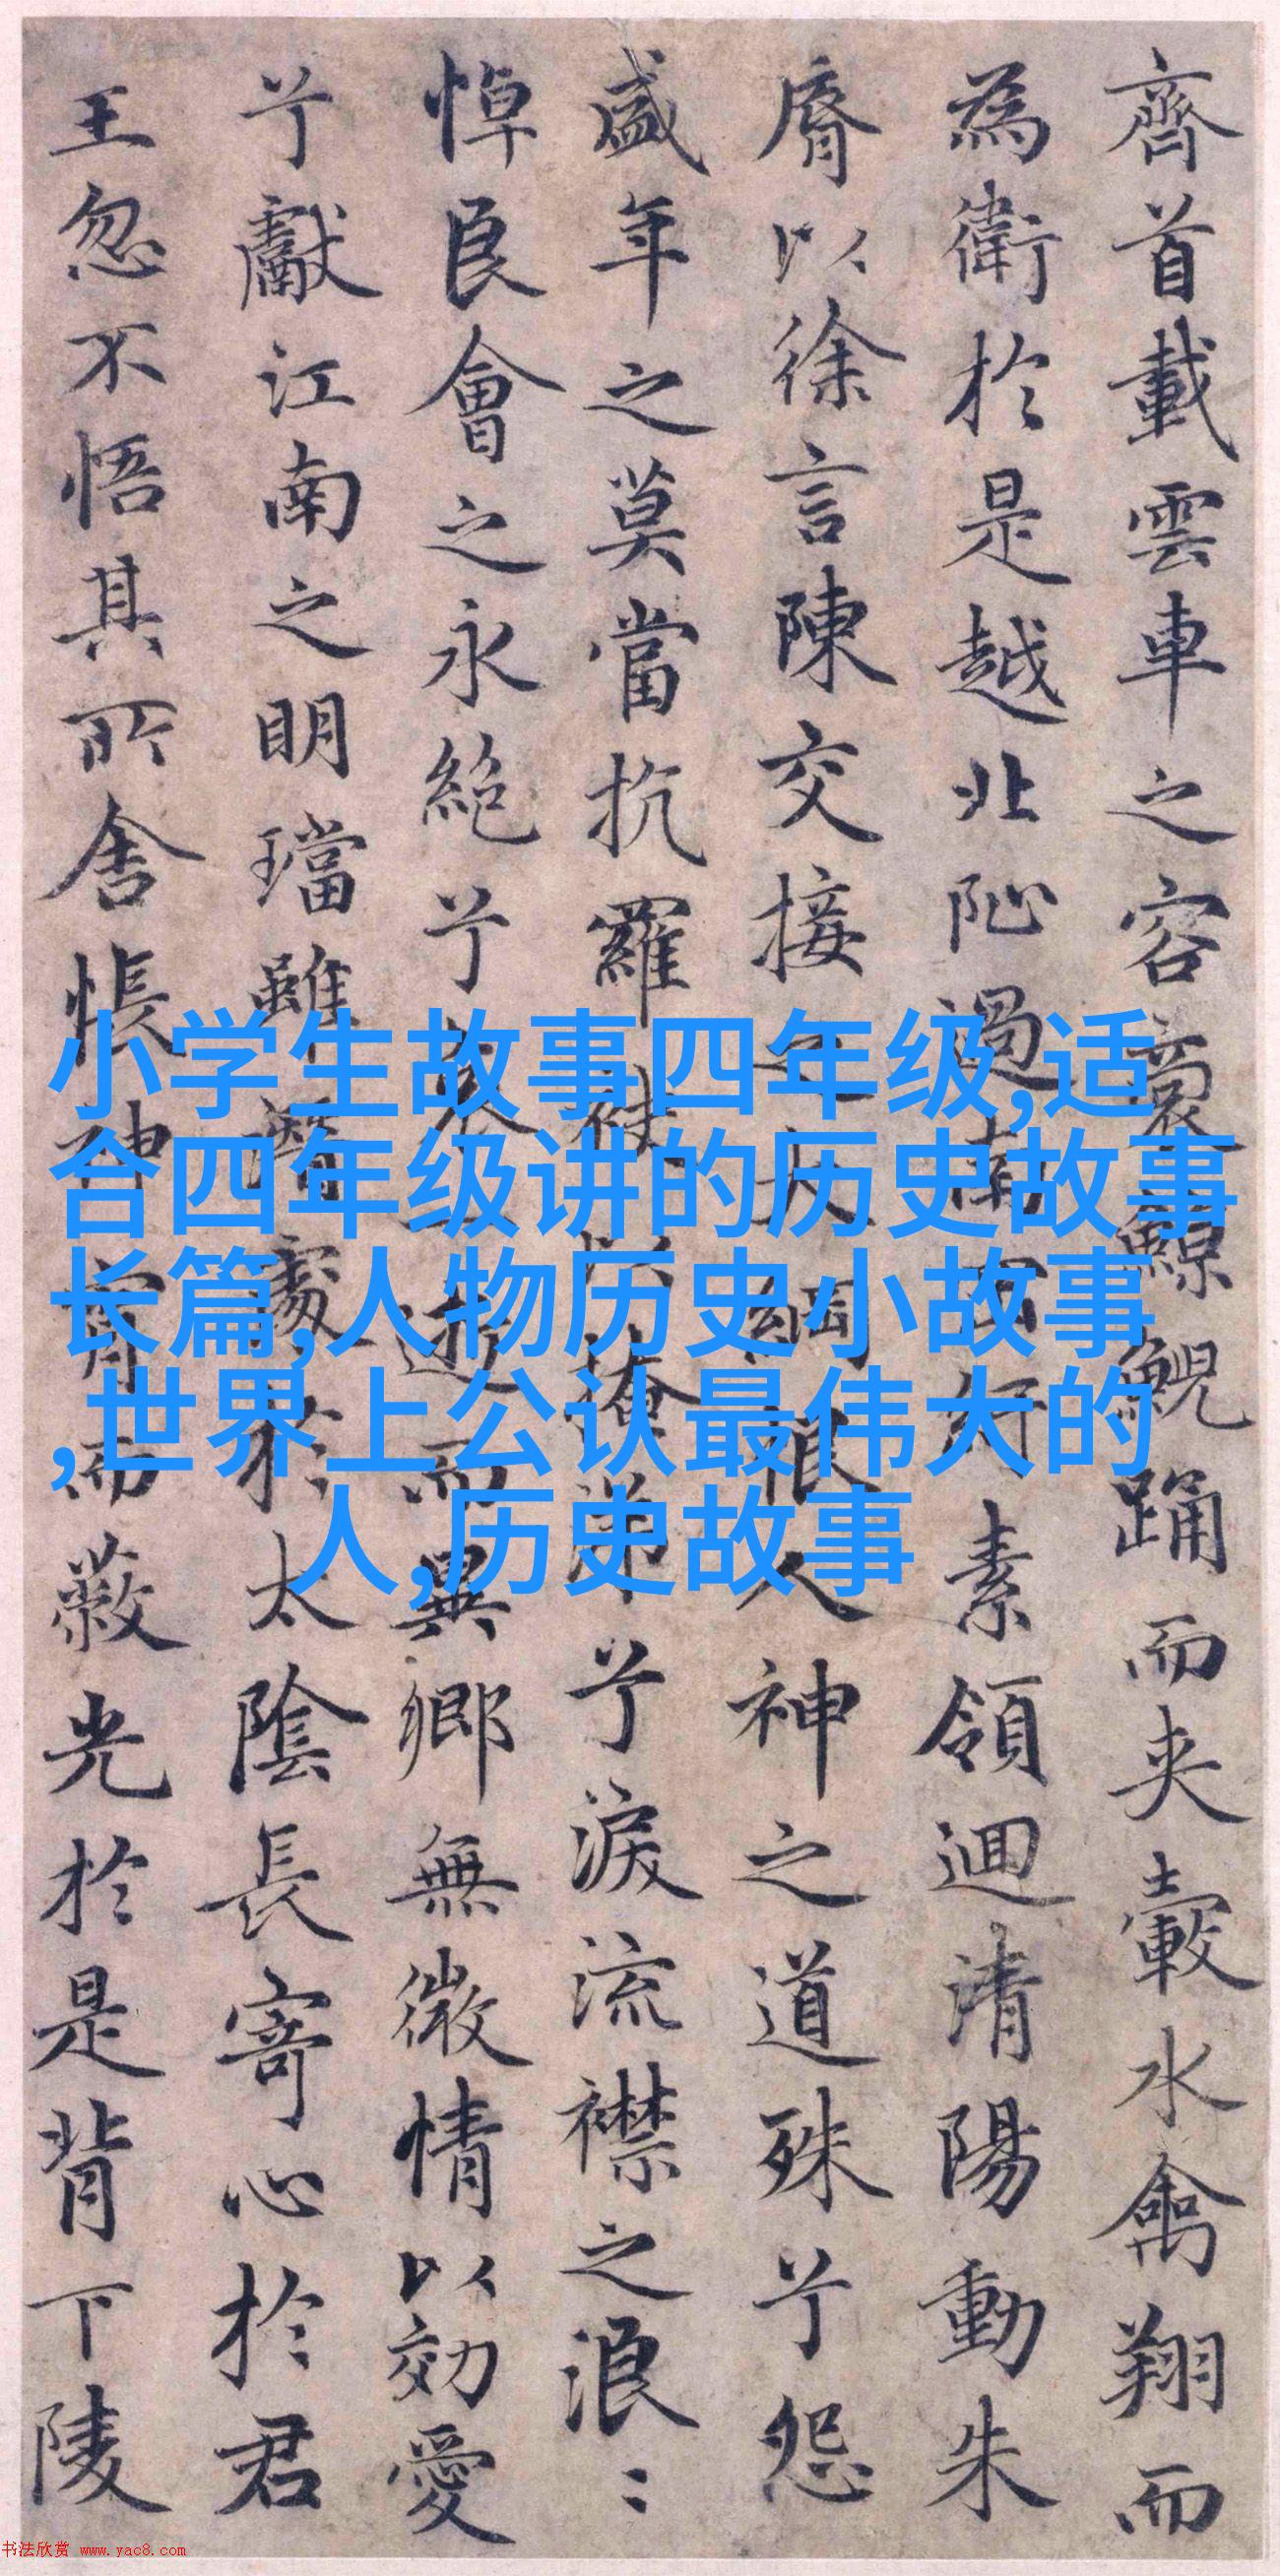 齊首載雲車之容裔鯨鯢踊而夾轂水禽翔而
為衛於是越北阯過南岡紆素領迴清陽動朱
脣以徐言陳交接之大綱恨人神之道殊兮怨
盛年之莫當抗羅袂以掩涕兮淚流襟之浪〻
悼良會之永絶兮哀一逝而異鄉無微情以効愛
兮獻江南之明璫雖潛處於太陰長寄心於君
王忽不悟其所舍悵神宵而蔽光於是背下陵
小学生故事四年级,适
合四年级讲的历史故事
长篇,人物历史小故事
,世界上公认最伟大的
人,历史故事
书法欣赏 www.yac8.com